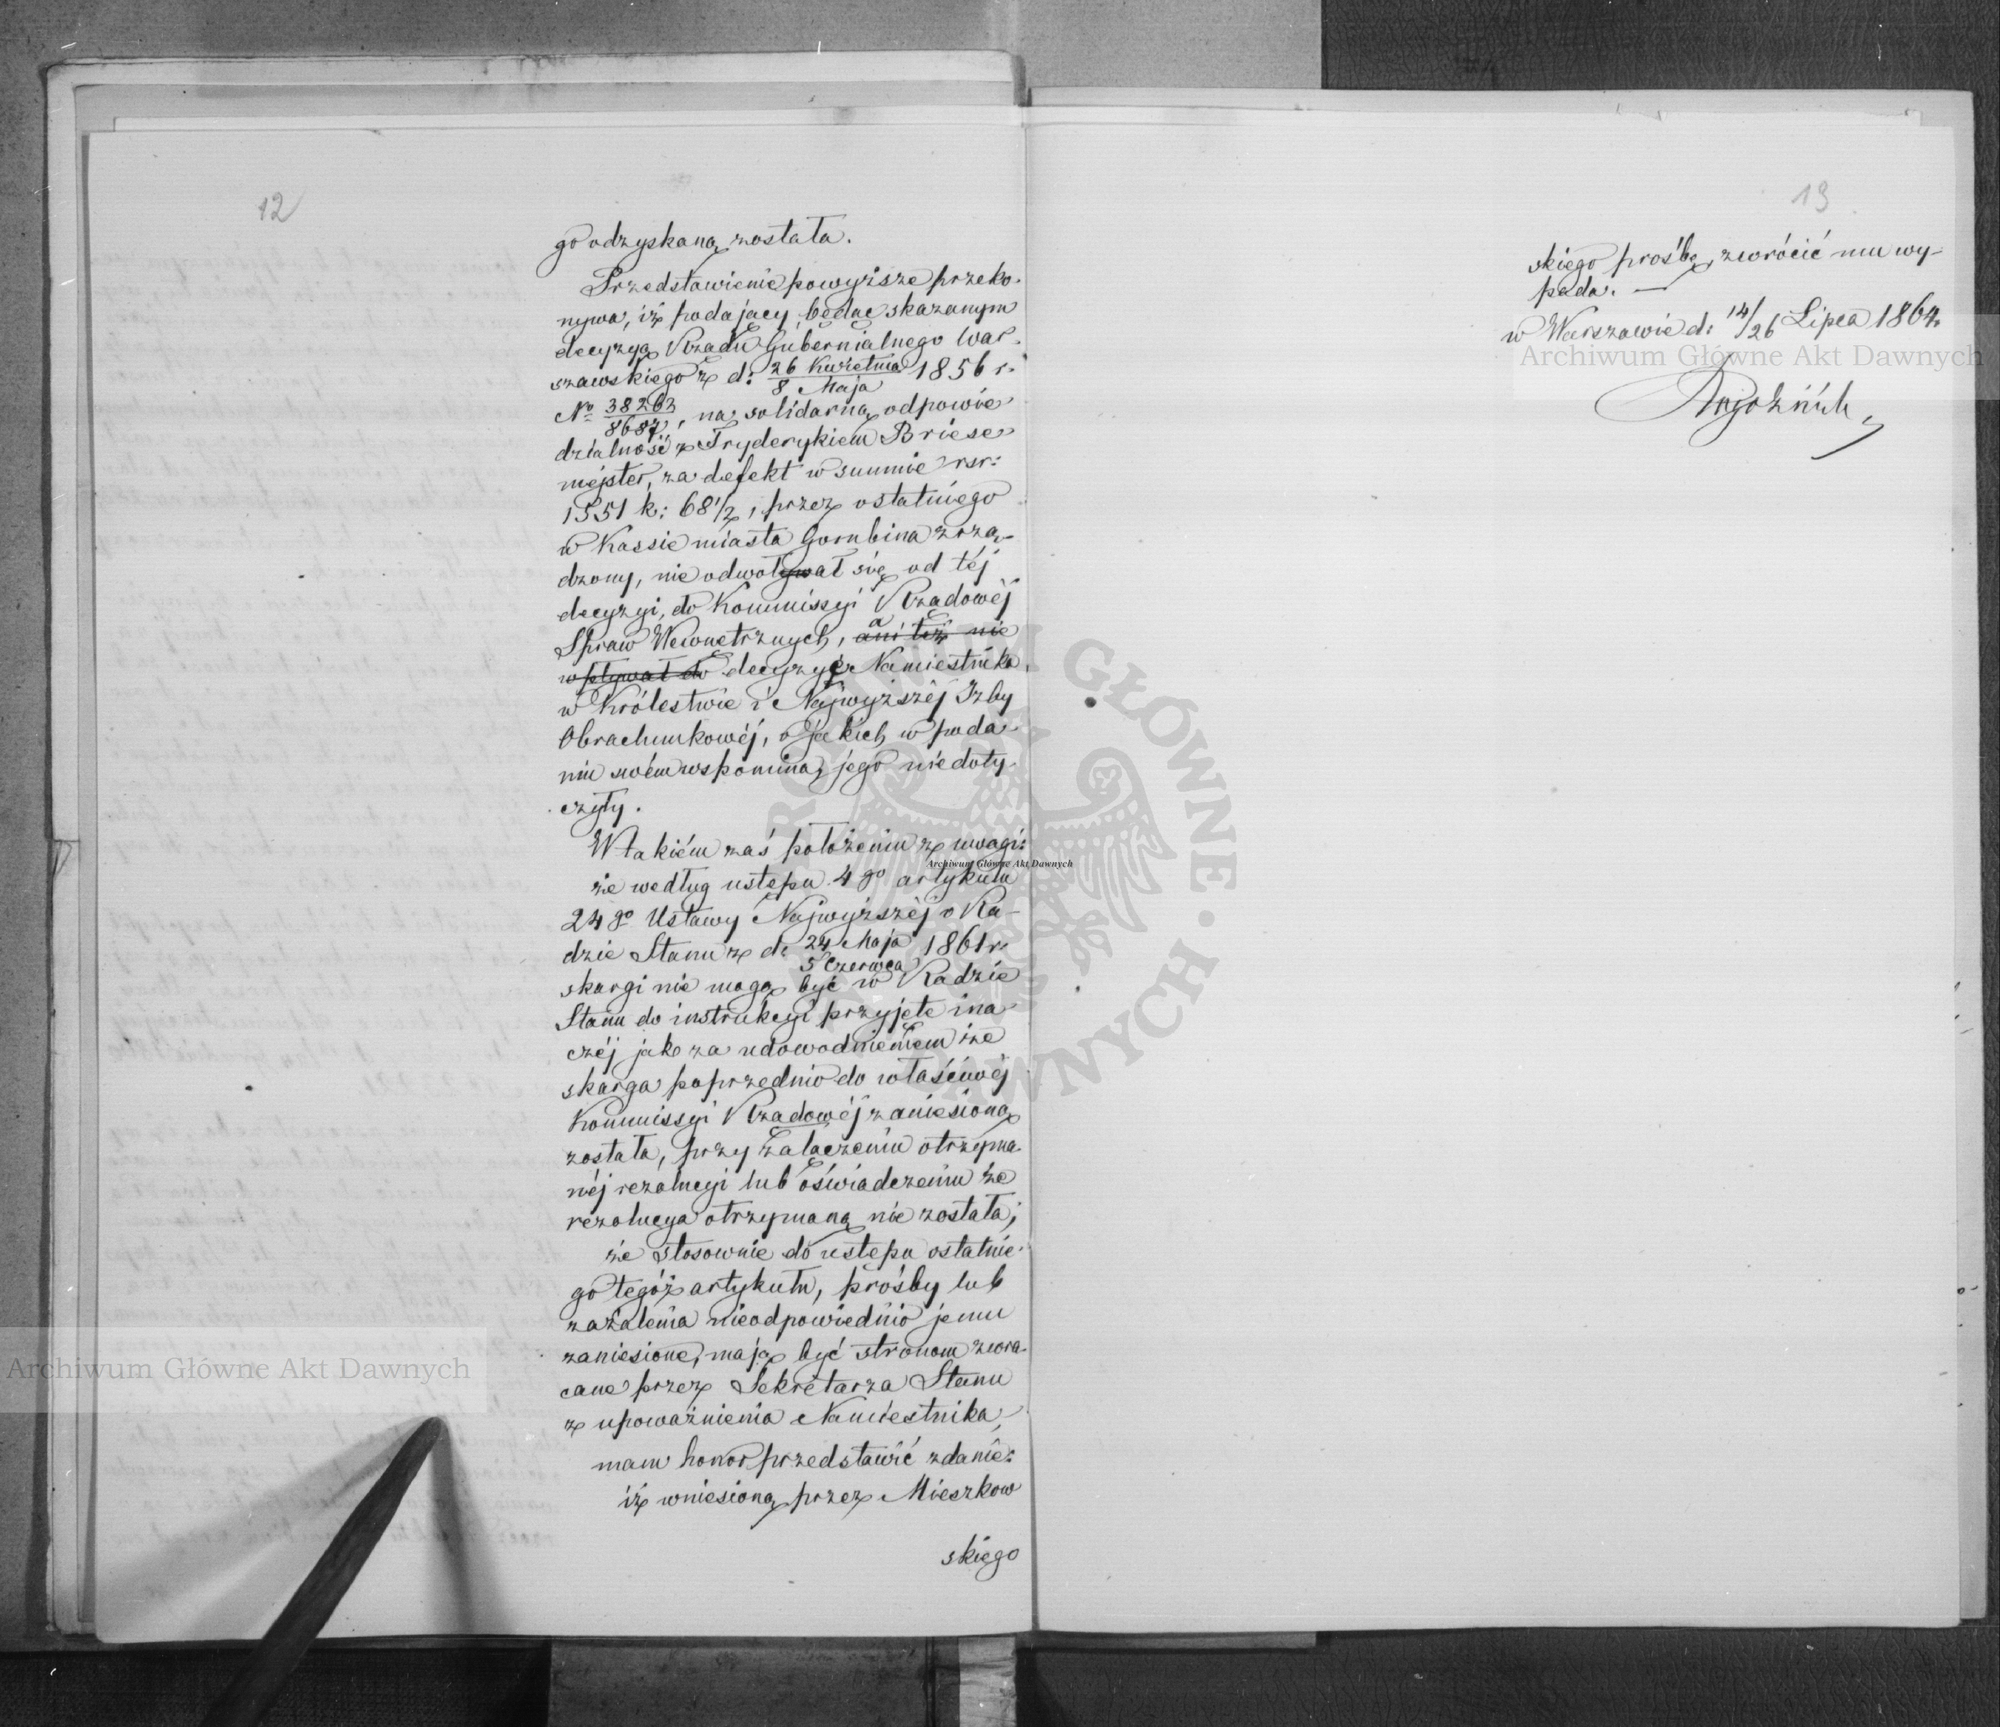 12
go odzyskaną została.
Przedstawienie powyższe przeko-
nywa, iż podający będąc skazanym
decyzyą Rządu Gubernialnego War-
szawskiego z d: 26 Kwietnia / 8 Maja 1856 r.
No 38263 / 8687, na solidarną odpowie
dzialność z Fryderykiem Briese
mejster, za defekt w summie rsr:
1551 k: 68 1/2, przez ostatniego
w Kassie miasta Gombina zrzą-
dzony, nie odwoływał się od téj
decyzyi, do Kommissyi Rządowéj
Spraw Wewnetrznych, a ani też nie
wpływał do decyzye Namiestnika
w Królestwie i Najwyższéj Izby
Obrachunkowéj, o jakich w poda-
niu swém wspomina, jego niedoty-
czyły.
W takiém zaś położeniu z uwagi:
że według ustępu 4go artykułu
24go Ustawy Najwyższéj o Ra-
dzie Stanu z d. 24 Maja / 5 Czerwca 1861 r.
skargi nie mogą być w Radzie
Stanu do instrukcyi przyjęte ina-
czéj jak za udowodnieniem że
skarga poprzednio do właściwéj
Kommissyi Rządowéj zaniesioną
została, przy załączeniu otrzyma-
néj rezolucyi lub oświadczeniu że
rezolucya otrzymaną nie została;
że stosownie do ustępu ostatnie-
go tegoż artykułu, prośby lub
zażalenia nieodpowiednio jemu
zaniesione, mają być stronom zwra-
cane przez Sekretarza Stanu
z upoważnienia Namiestnika,
mam honor przedstawić zdanie:
iż wniesioną przez Mieszkow
skiego
13
skiego prośbę, zwrócić mu wy-
pada. —
w Warszawie d: 14/26 Lipca 1864.
Archiwum Główne Akt Dawnych
Archiwum Główne Akt Dawnych
Archiwum Główne Akt Dawnych